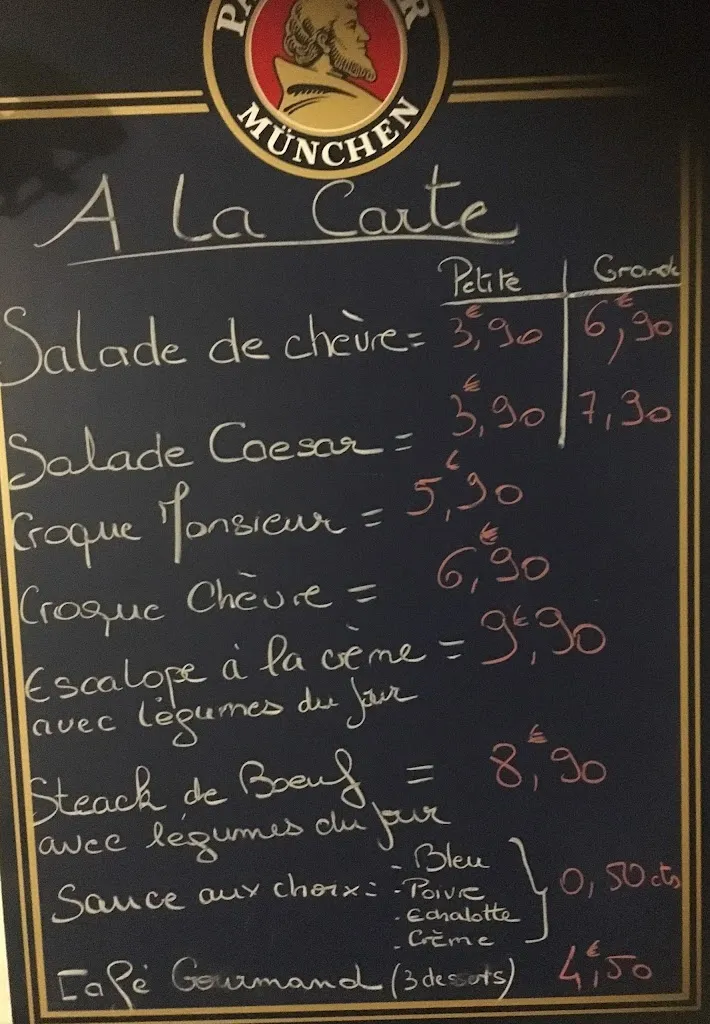 MÜNCHEN
A La Carte
Petite Grande
Salade de chèvre = 3,90 € 6,90 €
Salade Caesar = 3,90 € 7,90
Croque Monsieur = 5,90 €
Croque Chèvre = 6,90 €
Escalope à la crème = 9,90 €
avec légumes du jour
Steack de Boeuf = 8,90 €
avec légumes du jour
- Bleu
Sauce aux choix: - Poivre 0,50 cts
- Echalotte
- Crème
Café Gourmand (3 desserts) 4,50 €